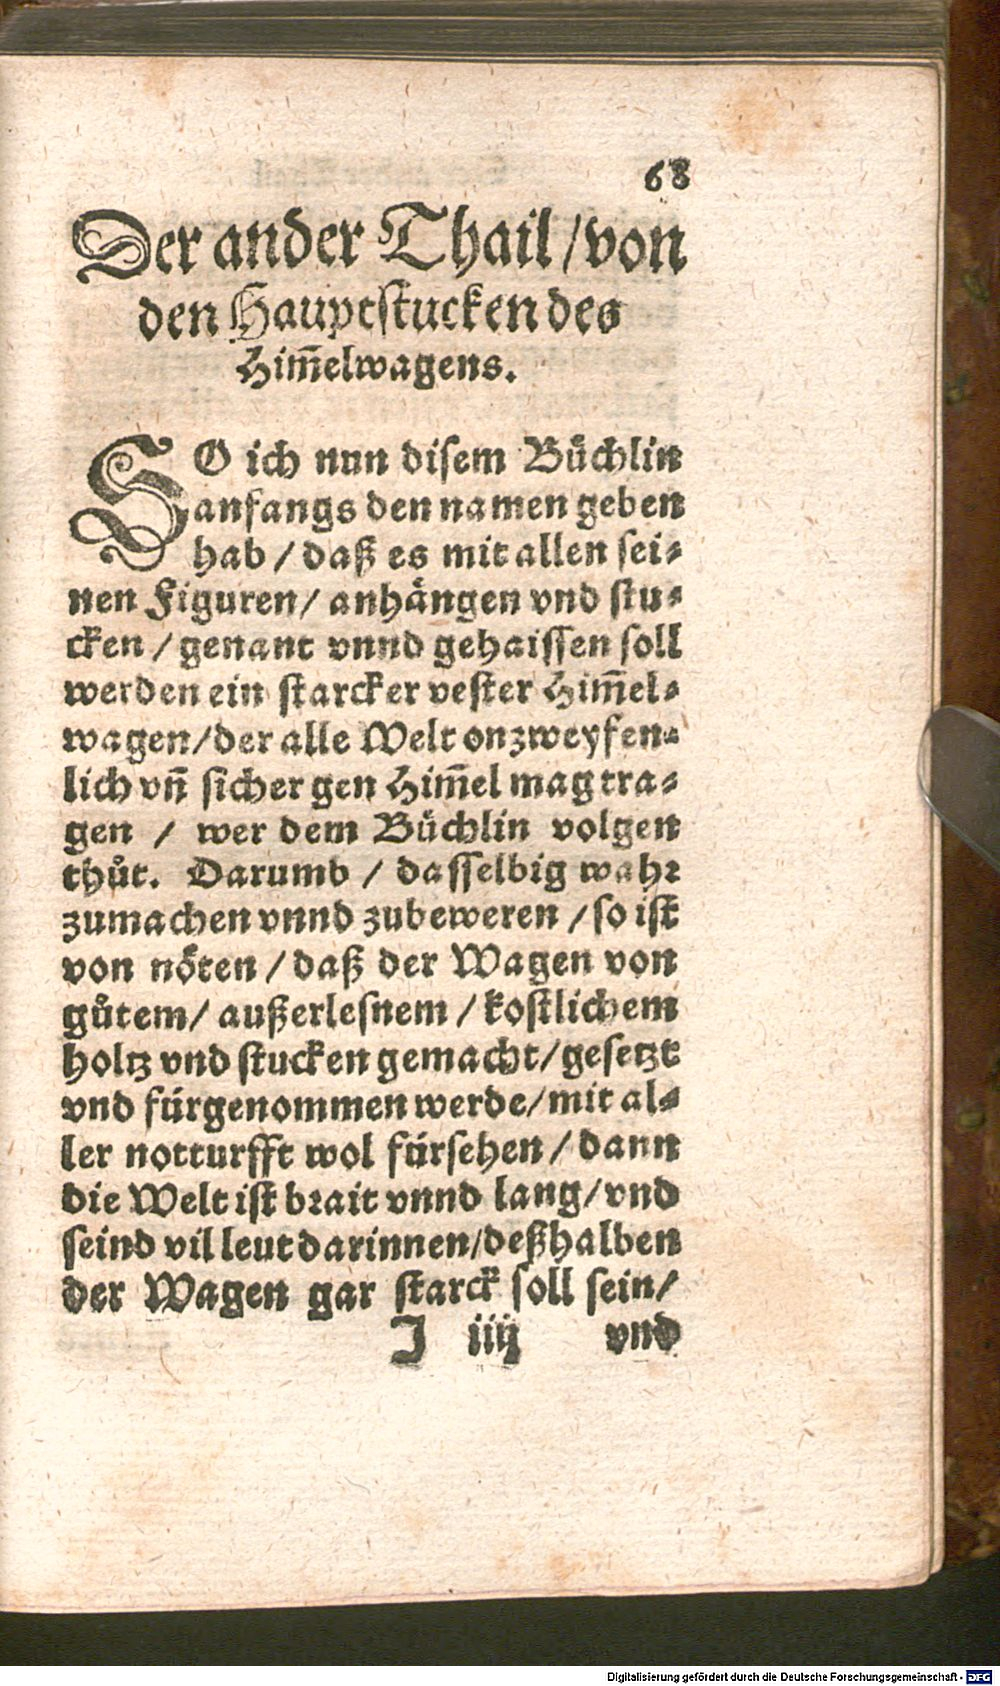 68
Der ander Thail / von
den Hauptstucken des
Him̄elwagens.
SO ich nun disem Bůchlin
anfangs den namen geben
hab / daß es mit allen sei-
nen Figuren / anhången vnd stu-
cken / genant vnnd gehaissen soll
werden ein starcker vester Him̄el-
wagen / der alle Welt onzweyfen-
lich vn̄ sicher gen Him̄el mag tra-
gen / wer dem Bůchlin volgen
thůt. Darumb / dasselbig wahr
zumachen vnnd zubeweren / so ist
von nöten / daß der Wagen von
gůtem / außerlesnem / kostlichem
holtz vnd stucken gemacht / gesetzt
vnd fürgenommen werde / mit al-
ler notturfft wol fürsehen / dann
die Welt ist brait vnnd lang / vnd
seind vil leut darinnen / deßhalben
der Wagen gar starck soll sein /
J iiij vnd
Digitalisierung gefördert durch die Deutsche Forschungsgemeinschaft - DFG